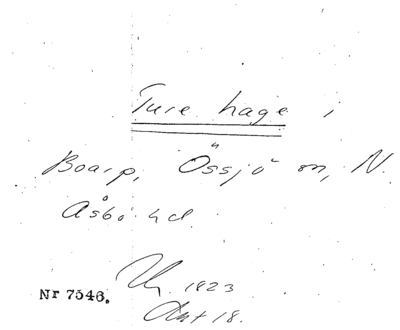 Ture hage i
Boarp, Össjö sn, N.
Åsbo hd.
1823
Nr 7546.
18.